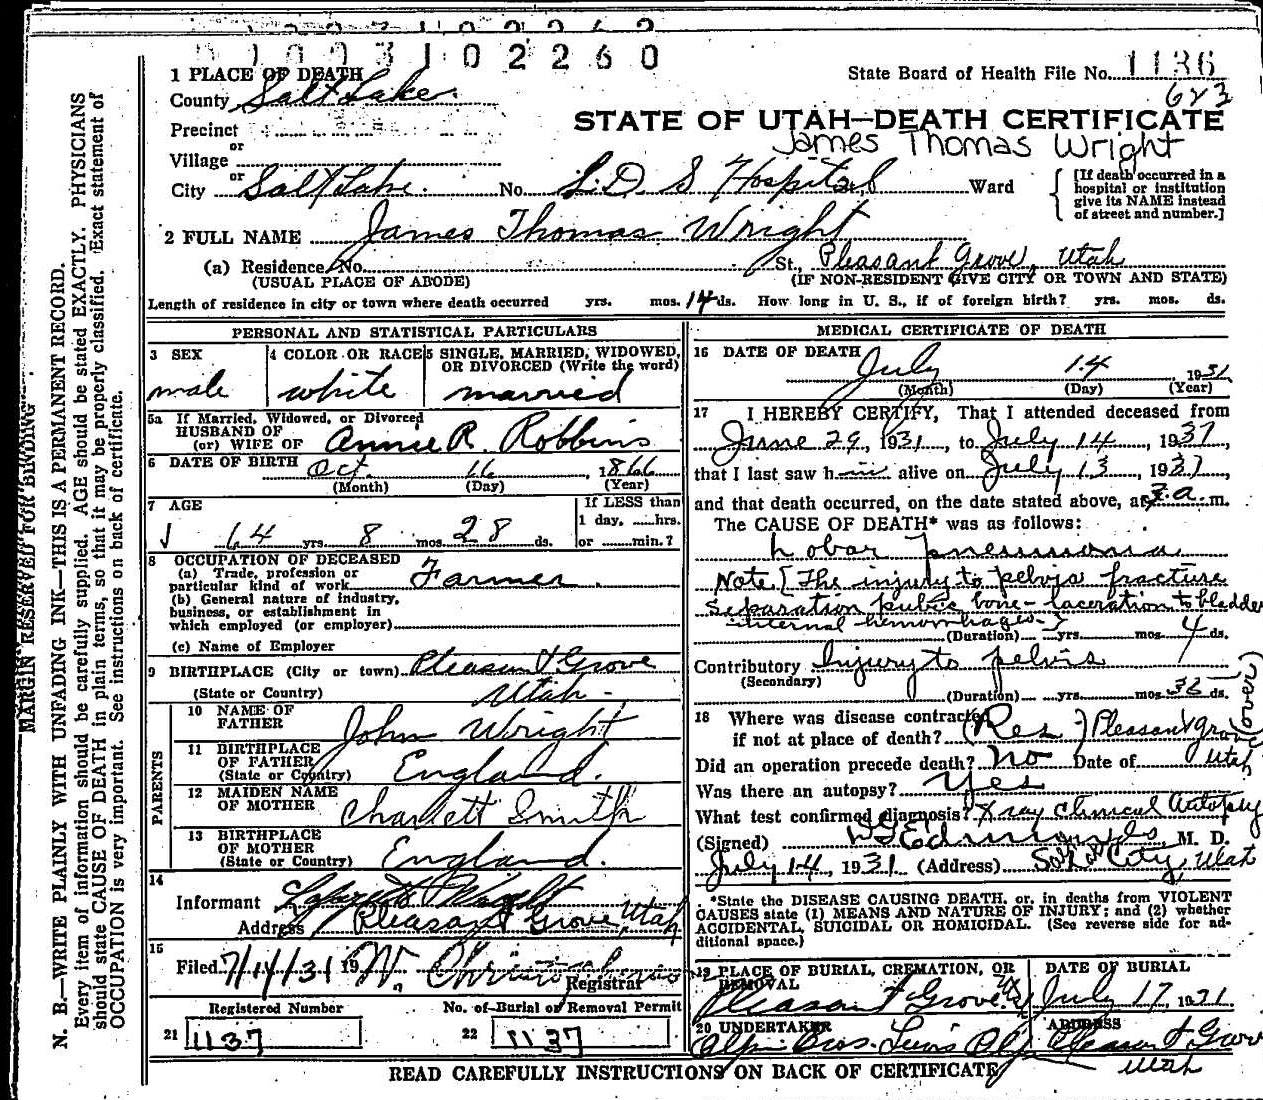 1003102260
1 PLACE OF DEATH
State Board of Health File No. 1136
County Salt Lake
623
Precinct
STATE OF UTAH—DEATH CERTIFICATE
or
James Thomas Wright
Village
or
City Salt Lake. No. L.D.S Hospital Ward
[If death occurred in a
hospital or institution
give its NAME instead
of street and number.]
2 FULL NAME James Thomas Wright
(a) Residence No. St., Pleasant Grove, Utah
(USUAL PLACE OF ABODE) (IF NON-RESIDENT GIVE CITY OR TOWN AND STATE)
Length of residence in city or town where death occurred yrs. mos. 14 ds. How long in U. S., if of foreign birth? yrs. mos. ds.
PERSONAL AND STATISTICAL PARTICULARS
3 SEX
male
4 COLOR OR RACE
white
5 SINGLE, MARRIED, WIDOWED,
OR DIVORCED (Write the word)
married
5a If Married, Widowed, or Divorced
HUSBAND OF
(or) WIFE OF Annie R. Robbins
6 DATE OF BIRTH Oct. 16, 1866
(Month) (Day) (Year)
7 AGE
64 yrs. 8 mos. 28 ds.
If LESS than
1 day, hrs.
or min.?
8 OCCUPATION OF DECEASED
(a) Trade, profession or
particular kind of work Farmer
(b) General nature of industry,
business, or establishment in
which employed (or employer)
(c) Name of Employer
9 BIRTHPLACE (City or town) Pleasant Grove
(State or Country) Utah -
PARENTS
10 NAME OF
FATHER John Wright
11 BIRTHPLACE
OF FATHER
(State or Country) England.
12 MAIDEN NAME
OF MOTHER Charlett Smith
13 BIRTHPLACE
OF MOTHER
(State or Country) England.
14
Informant Wright
Address Pleasant Grove, Utah
15
Filed 7/14/31 19 W.
Registrar
Registered Number No. of Burial or Removal Permit
21 1137 22 1137
MEDICAL CERTIFICATE OF DEATH
16 DATE OF DEATH
July 14 1931
(Month) (Day) (Year)
17 I HEREBY CERTIFY, That I attended deceased from
June 29, 1931, to July 14, 1931,
that I last saw him alive on July 13, 1931,
and that death occurred, on the date stated above, at 3.a.m.
The CAUSE OF DEATH* was as follows:
Lobar pneumonia
Note [The injury to pelvis fracture
separation pubic bone - laceration to bladder
internal hemorrhages]
(Duration) yrs. mos. 4 ds.
Contributory Injury to pelvis
(Secondary)
(Duration) yrs. mos. ds.
(over)
18 Where was disease contracted
if not at place of death? (Res) Pleasant Grove
Utah
Did an operation precede death? No Date of
Was there an autopsy? Yes
What test confirmed diagnosis? Xray Clinical Autopsy
(Signed) Edmunds M. D.
July 14, 1931 (Address) Salt Lake City, Utah
*State the DISEASE CAUSING DEATH, or, in deaths from VIOLENT
CAUSES state (1) MEANS AND NATURE OF INJURY; and (2) whether
ACCIDENTAL, SUICIDAL OR HOMICIDAL. (See reverse side for ad-
ditional space.)
19 PLACE OF BURIAL, CREMATION, OR
REMOVAL
Pleasant Grove. Ut
DATE OF BURIAL
July 17, 1931.
20 UNDERTAKER
Olpin Bros.
ADDRESS
Pleasant Grove
Utah
READ CAREFULLY INSTRUCTIONS ON BACK OF CERTIFICATE
MARGIN RESERVED FOR BINDING
N. B.—WRITE PLAINLY WITH UNFADING INK—THIS IS A PERMANENT RECORD.
Every item of information should be carefully supplied. AGE should be stated EXACTLY. PHYSICIANS
should state CAUSE OF DEATH in plain terms, so that it may be properly classified. Exact statement of
OCCUPATION is very important. See instructions on back of certificate.